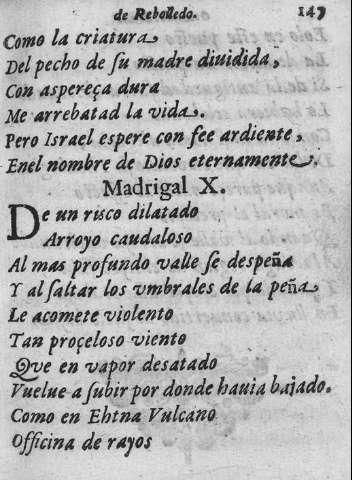 de Rebolledo. 147
Como la criatura
Del pecho de ſu madre diuidida,
Con aspereça dura
Me arrebatad la vida.
Pero Israel espere con fee ardiente,
Enel nombre de Dios eternamente.
Madrigal X.
De un risco dilatado
Arroyo caudaloso
Al mas profundo valle ſe despeña
Y al ſaltar los vmbrales de la peña
Le acomete violento
Tan proçeloso viento
Que en vapor desatado
Vuelue a ſubir por donde hauia bajado.
Como en Ehtna Vulcano
Officina de rayos